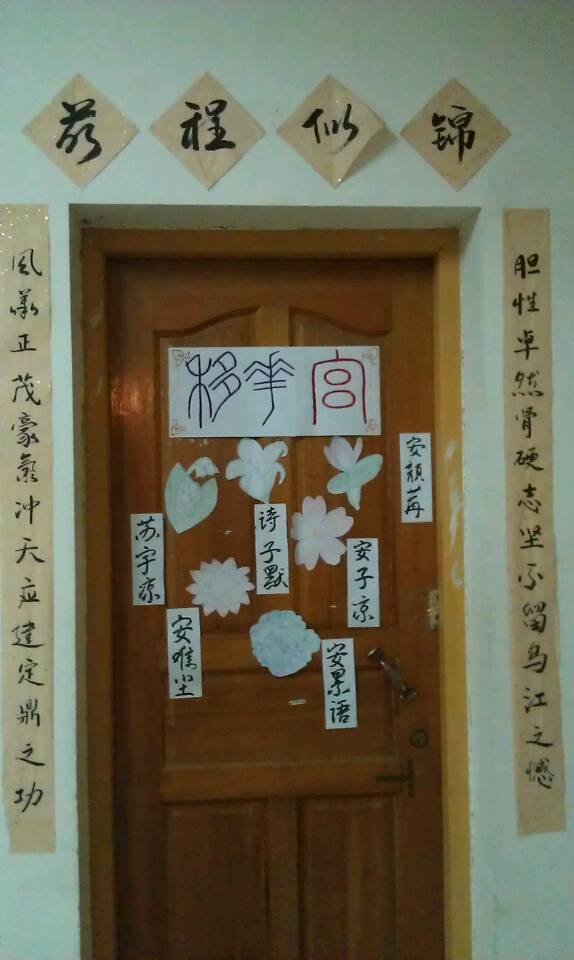 前程似锦
胆性卓然骨硬志坚不留乌江之憾
风華正茂豪氣冲天应建定鼎之功
移华宫
安颜苒
诗子默
苏宇凉
安子凉
安唯尘
安累语